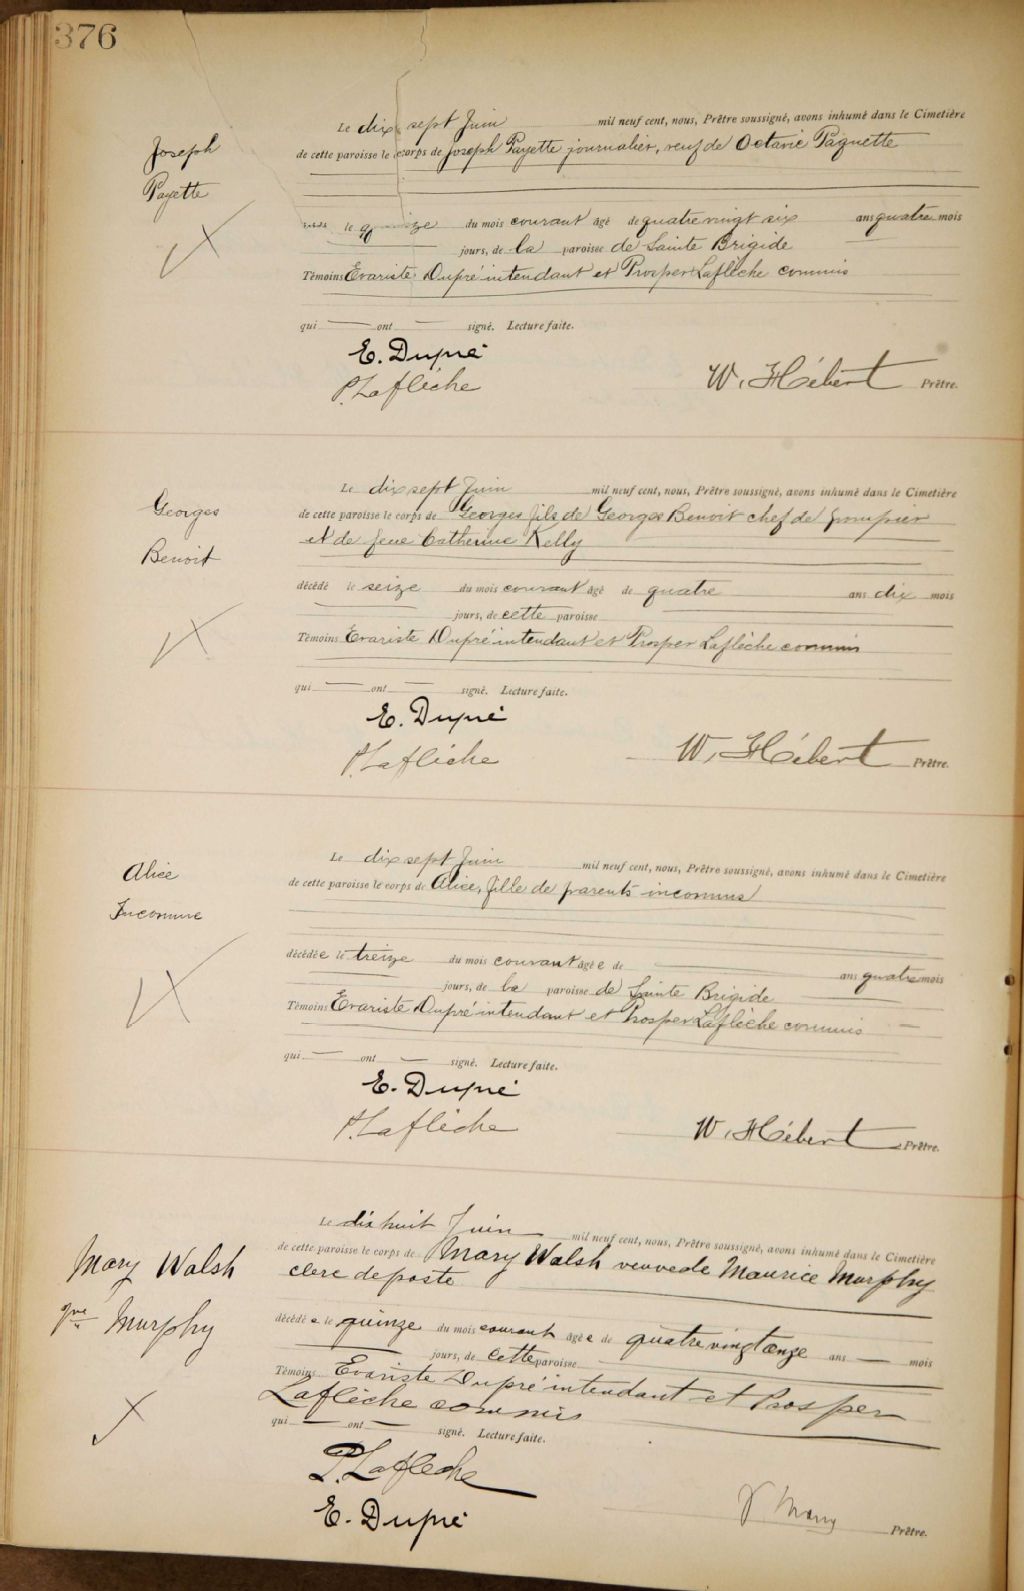 376
Joseph
Payette
Le dix sept Juin mil neuf cent, nous, Prêtre soussigné, avons inhumé dans le Cimetière
de cette paroisse le corps de Joseph Payette journalier, veuf de Octavie Paquette
le du mois courant âgé de quatre vingt six ans quatre mois
jours, de la paroisse de Sainte Brigide
Témoins Evariste Dupré intendant et Prosper Laflèche commis
qui ont signé. Lecture faite.
E. Dupré
P. Laflèche
W. Hébert Prêtre.
Georges
Benoit
Le dix sept Juin mil neuf cent, nous, Prêtre soussigné, avons inhumé dans le Cimetière
de cette paroisse le corps de Georges fils de Georges Benoit chef de pompier
et de feue Catherine Kelly
décédé le seize du mois courant âgé de quatre ans dix mois
jours, de cette paroisse
Témoins Evariste Dupré intendant et Prosper Laflèche commis
qui ont signé. Lecture faite.
E. Dupré
P. Laflèche
W. Hébert Prêtre.
Alice
Inconnue
Le dix sept Juin mil neuf cent, nous, Prêtre soussigné, avons inhumé dans le Cimetière
de cette paroisse le corps de Alice, fille de parents inconnus
décédée le treize du mois courant âgée de ans quatre mois
jours, de la paroisse de Sainte Brigide
Témoins Evariste Dupré intendant et Prosper Laflèche commis
qui ont signé. Lecture faite.
E. Dupré
P. Laflèche
W. Hébert Prêtre.
Mary Walsh
Murphy
Le dix huit Juin mil neuf cent, nous, Prêtre soussigné, avons inhumé dans le Cimetière
de cette paroisse le corps de Mary Walsh veuve de Maurice Murphy
clerc de poste
décédée le quinze du mois courant âgée de quatre vingt onze ans mois
jours, de cette paroisse
Témoins Evariste Dupré intendant et Prosper
Laflèche commis
qui ont signé. Lecture faite.
P. Laflèche
E. Dupré
Prêtre.